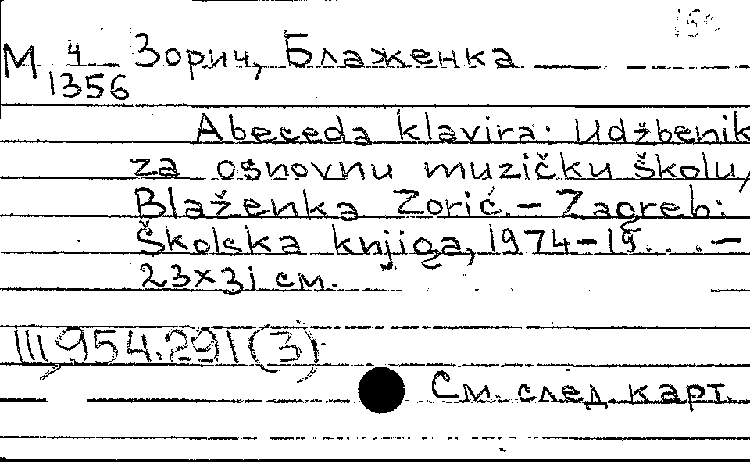 М 4/1356 Зорич, Блаженка
Abeceda klavira: Udžbenik
za osnovnu muzičku školu/
Blaženka Zorić.- Zagreb:
Školska knjiga, 1974-19. . .-
23x31 см.
III,954.291(3)
См. след. карт.